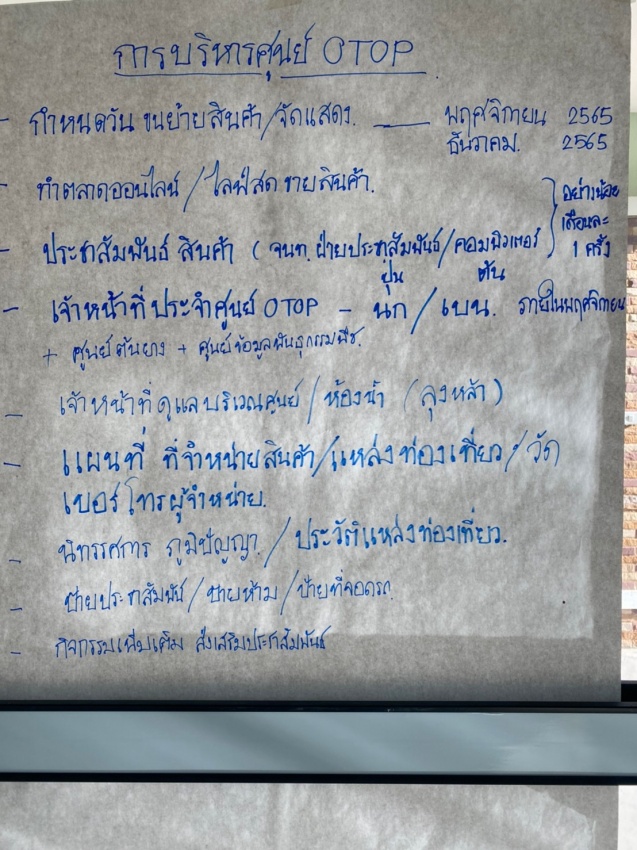 การบริหารศูนย์ OTOP
- กำหนดวัน ขนย้ายสินค้า/จัดแสดง. — พฤศจิกายน 2565
ธันวาคม. 2565
- ทำตลาดออนไลน์ / ไลฟ์สด ขายสินค้า.
- ประชาสัมพันธ์ สินค้า ( จนท. ฝ่ายประชาสัมพันธ์/คอมพิวเตอร์
อย่างน้อย
เดือนละ
1 ครั้ง
ปุ่น ต้น
- เจ้าหน้าที่ประจำศูนย์ OTOP - นก / เบน. ภายในพฤศจิกายน
+ ศูนย์ต้นยาง + ศูนย์ข้อมูลพันธุกรรมพืช.
- เจ้าหน้าที่ดูแลบริเวณศูนย์ / ห้องน้ำ (ลุงหล้า)
- แผนที่ ที่จำหน่ายสินค้า/แหล่งท่องเที่ยว/วัด
เบอร์โทรผู้จำหน่าย.
- นิทรรศการ ภูมิปัญญา / ประวัติแหล่งท่องเที่ยว.
- ป้ายประชาสัมพันธ์ / ป้ายห้าม / ป้ายที่จอดรถ
- กิจกรรมเพิ่มเติม ส่งเสริมประชาสัมพันธ์